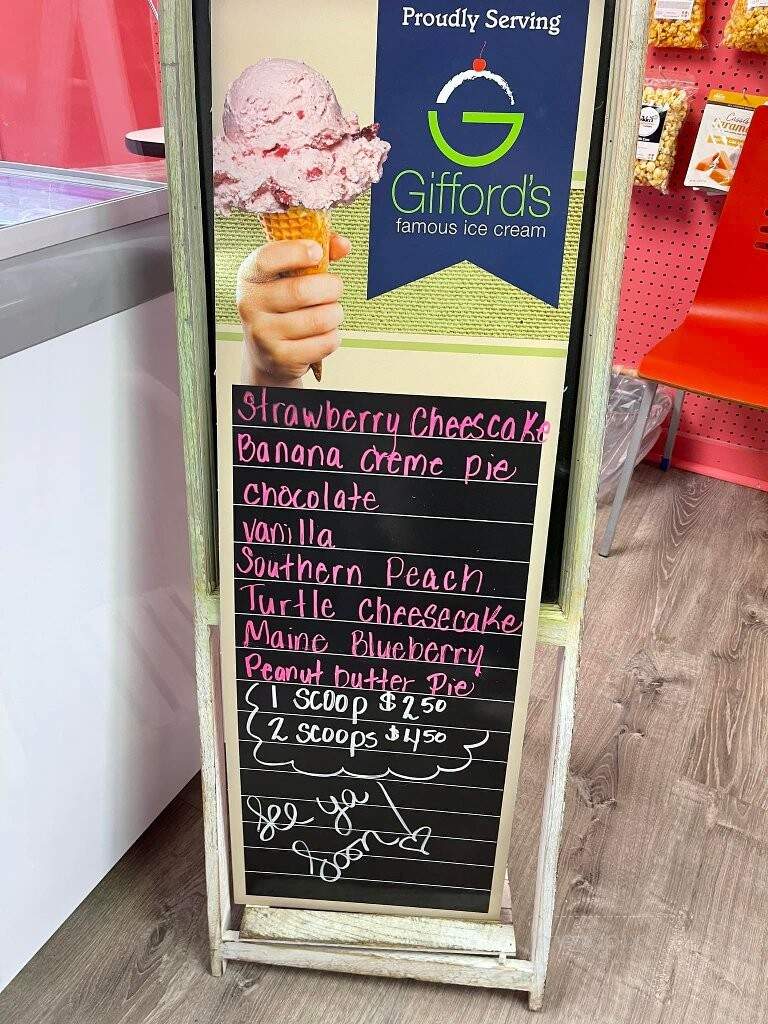 Proudly Serving
Gifford's
famous ice cream
Strawberry Cheescake
Banana creme pie
chocolate
vanilla
Southern Peach
Turtle cheesecake
Maine Blueberry
Peanut butter Pie
1 scoop $250
2 scoops $450
See ya
soon